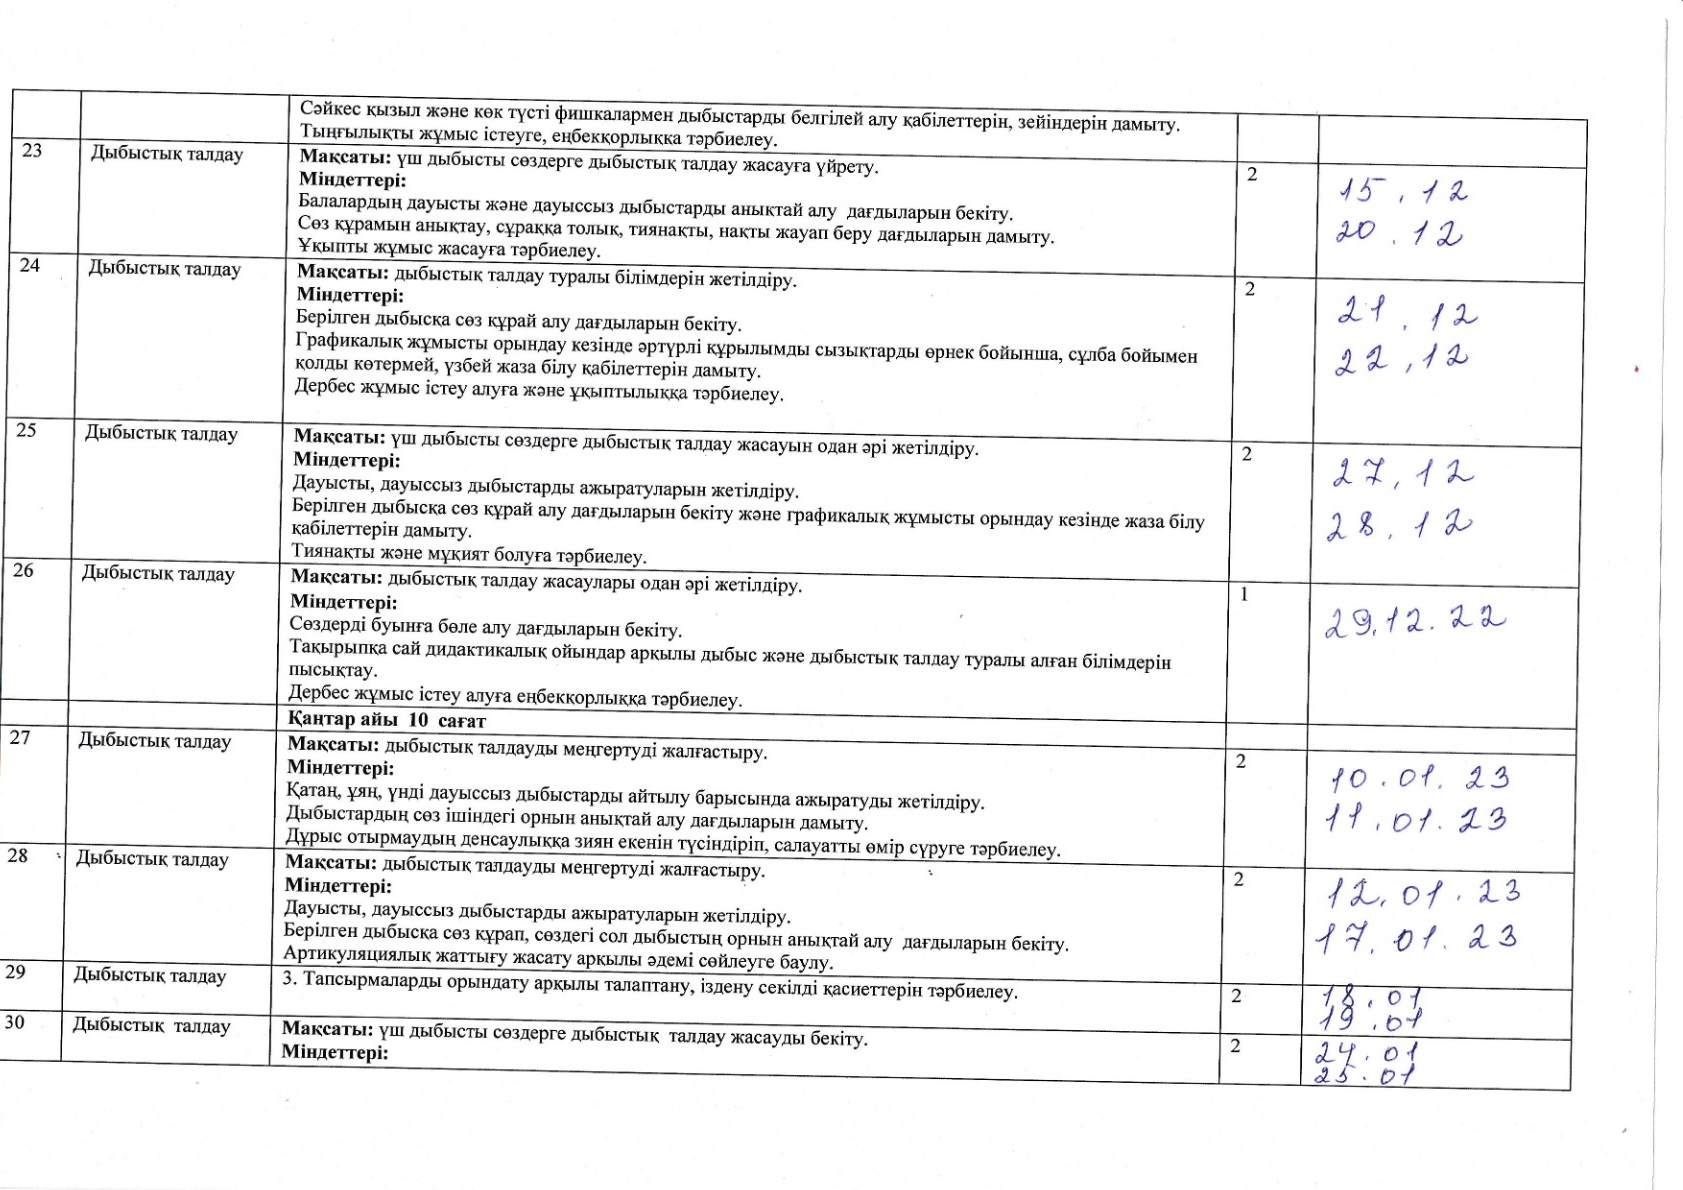 Сәйкес қызыл және көк түсті фишкалармен дыбыстарды белгілей алу қабілеттерін, зейіндерін дамыту.
Тыңғылықты жұмыс істеуге, еңбекқорлыққа тәрбиелеу.
23 Дыбыстық талдау Мақсаты: үш дыбысты сөздерге дыбыстық талдау жасауға үйрету. 2
Міндеттері: 15.12
Балалардың дауысты және дауыссыз дыбыстарды анықтай алу дағдыларын бекіту.
Сөз құрамын анықтау, сұраққа толық, тиянақты, нақты жауап беру дағдыларын дамыту. 20.12
Ұқыпты жұмыс жасауға тәрбиелеу.
24 Дыбыстық талдау Мақсаты: дыбыстық талдау туралы білімдерін жетілдіру. 2
Міндеттері: 21.12
Берілген дыбысқа сөз құрай алу дағдыларын бекіту.
Графикалық жұмысты орындау кезінде әртүрлі құрылымды сызықтарды өрнек бойынша, сұлба бойымен 22,12
қолды көтермей, үзбей жаза білу қабілеттерін дамыту.
Дербес жұмыс істеу алуға және ұқыптылыққа тәрбиелеу.
25 Дыбыстық талдау Мақсаты: үш дыбысты сөздерге дыбыстық талдау жасауын одан әрі жетілдіру. 2
Міндеттері: 27,12
Дауысты, дауыссыз дыбыстарды ажыратуларын жетілдіру.
Берілген дыбысқа сөз құрай алу дағдыларын бекіту және графикалық жұмысты орындау кезінде жаза білу 28.12
қабілеттерін дамыту.
Тиянақты және мұқият болуға тәрбиелеу.
26 Дыбыстық талдау Мақсаты: дыбыстық талдау жасаулары одан әрі жетілдіру. 1
Міндеттері: 29.12.22
Сөздерді буынға бөле алу дағдыларын бекіту.
Тақырыпқа сай дидактикалық ойындар арқылы дыбыс және дыбыстық талдау туралы алған білімдерін
пысықтау.
Дербес жұмыс істеу алуға еңбекқорлыққа тәрбиелеу.
Қаңтар айы 10 сағат
27 Дыбыстық талдау Мақсаты: дыбыстық талдауды меңгертуді жалғастыру. 2
Міндеттері: 10.01.23
Қатаң, ұяң, үнді дауыссыз дыбыстарды айтылу барысында ажыратуды жетілдіру.
Дыбыстардың сөз ішіндегі орнын анықтай алу дағдыларын дамыту. 11.01.23
Дұрыс отырмаудың денсаулыққа зиян екенін түсіндіріп, салауатты өмір сүруге тәрбиелеу.
28 Дыбыстық талдау Мақсаты: дыбыстық талдауды меңгертуді жалғастыру. 2
Міндеттері: 12.01.23
Дауысты, дауыссыз дыбыстарды ажыратуларын жетілдіру.
Берілген дыбысқа сөз құрап, сөздегі сол дыбыстың орнын анықтай алу дағдыларын бекіту. 17.01.23
Артикуляциялық жаттығу жасату арқылы әдемі сөйлеуге баулу.
29 Дыбыстық талдау 3. Тапсырмаларды орындату арқылы талаптану, іздену секілді қасиеттерін тәрбиелеу. 2 18.01
19.01
30 Дыбыстық талдау Мақсаты: үш дыбысты сөздерге дыбыстық талдау жасауды бекіту. 2 24.01
Міндеттері: 25.01